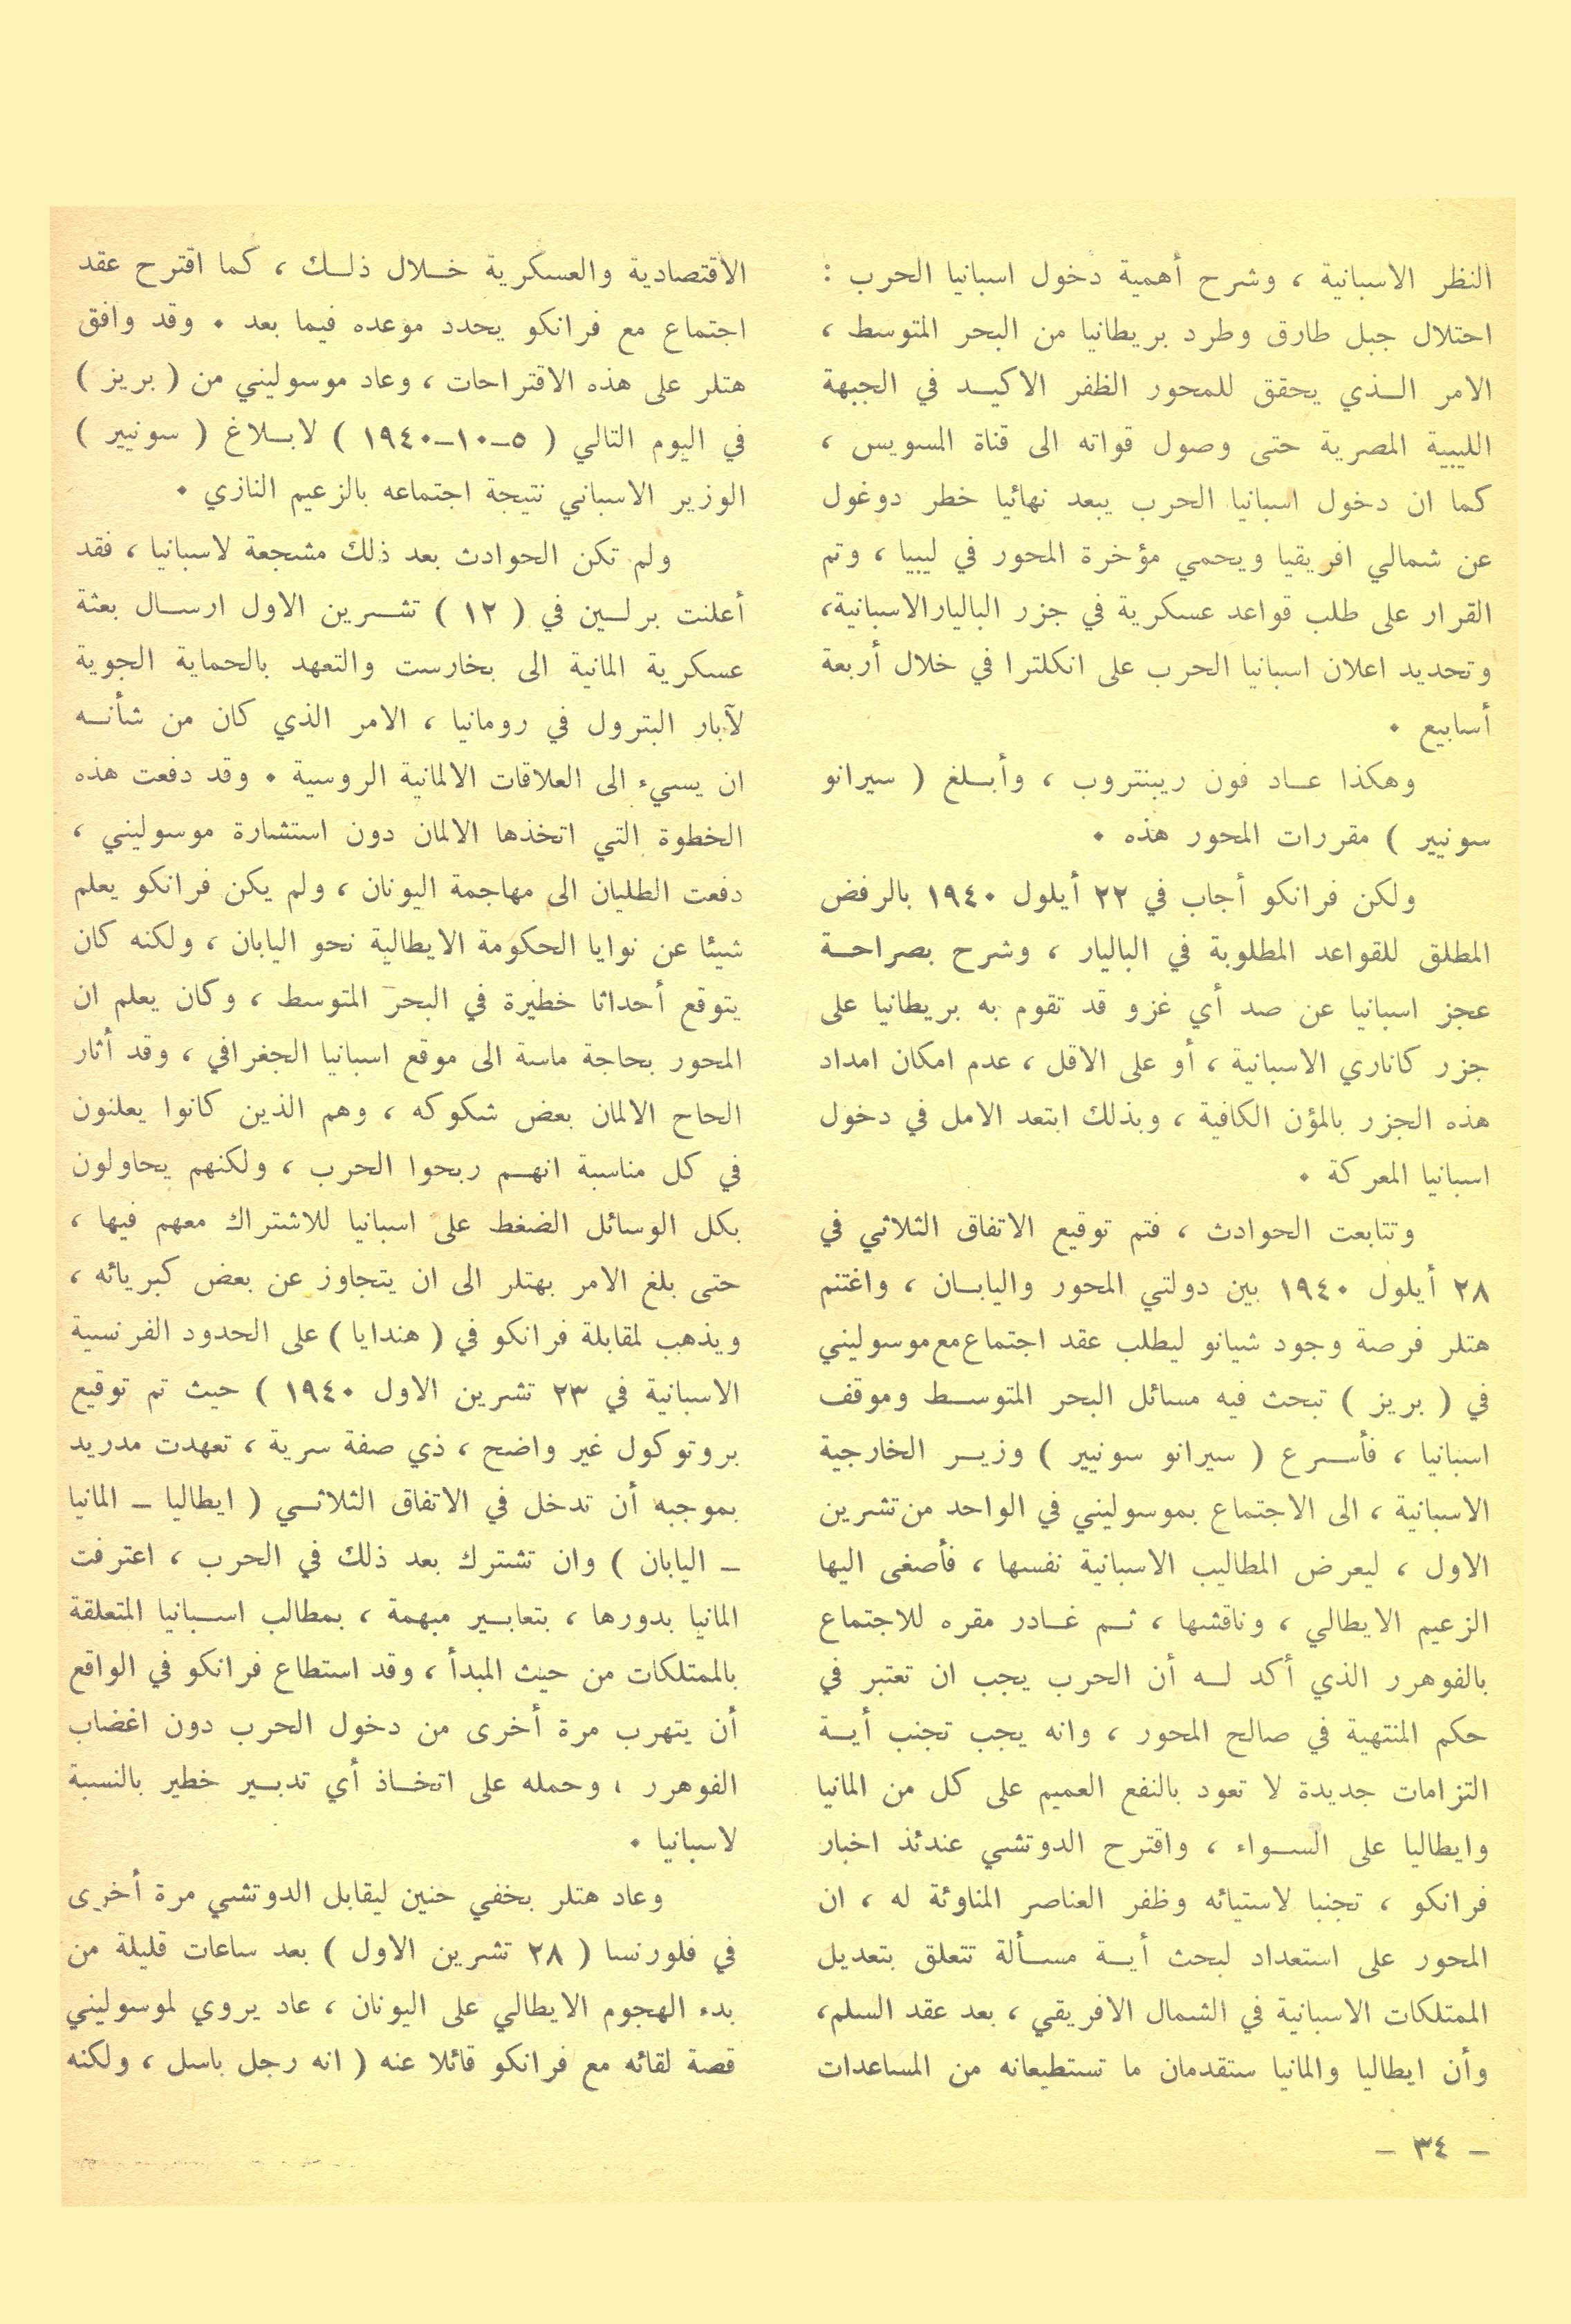 النظر الاسبانية ، وشرح أهمية دخول اسبانيا الحرب :
احتلال جبل طارق وطرد بريطانيا من البحر المتوسط ،
الامر الـذي يحقق للمحور الظفر الاكيـد في الجبهة
الليبية المصرية حتى وصول قواته الى قناة السويس ،
كما ان دخول اسبانيا الحرب يبعد نهائيا خطر دوغول
عن شمالي افريقيا ويحمي مؤخرة المحور في ليبيا ، وتم
القرار على طلب قواعد عسكرية في جزر الباليارالاسبانية،
وتحديد اعلان اسبانيا الحرب على انكلترا في خلال أربعة
أسابيع ٠
وهكذا عـاد فون ريبنتروب ، وأبـلغ ( سيرانو
سونيير ) مقررات المحور هذه ٠
ولكن فرانكو أجاب في ٢٢ أيلول ١٩٤٠ بالرفض
المطلق للقواعد المطلوبة في الباليار ، وشرح بصراحـة
عجز اسبانيا عن صد أي غزو قد تقوم به بريطانيا على
جزر كاناري الاسبانية ، أو على الاقل ، عدم امكان امداد
هذه الجزر بالمؤن الكافية ، وبذلك ابتعد الامل في دخول
اسبانيا المعركة ٠
وتتابعت الحوادث ، فتم توقيع الاتفاق الثلاثي في
٢٨ أيلول ١٩٤٠ بين دولتي المحور واليابـان ، واغتنم
هتلر فرصة وجود شيانو ليطلب عقد اجتماع مع موسوليني
في ( بريز ) تبحث فيه مسائل البحر المتوسـط وموقف
اسبانيا ، فأسـرع ( سيرانو سونيير ) وزيـر الخارجية
الاسبانية ، الى الاجتماع بموسوليني في الواحد من تشرين
الاول ، ليعرض المطاليب الاسبانية نفسها ، فأصغى اليها
الزعيم الايطالي ، وناقشها ، ثـم غـادر مقره للاجتماع
بالفوهرر الذي أكد لـه أن الحرب يجب ان تعتبر في
حكم المنتهية في صالح المحور ، وانه يجب تجنب أيـة
التزامات جديدة لا تعود بالنفع العميم على كل من المانيا
وايطاليا على السـواء ، واقترح الدوتشي عندئذ اخبار
فرانكو ، تجنبا لاستيائه وظفر العناصر المناوئة له ، ان
المحور على استعداد لبحث أيـة مسـألة تتعلق بتعديل
الممتلكات الاسبانية في الشمال الافريقي ، بعد عقد السلم،
وأن ايطاليا والمانيا ستقدمان ما تستطيعانه من المساعدات
الاقتصادية والعسكرية خـلال ذلـك ، كما اقترح عقد
اجتماع مع فرانكو يحدد موعده فيما بعد ٠ وقد وافق
هتلر على هذه الاقتراحات ، وعاد موسوليني من ( بريز )
في اليوم التالي ( ٥ـ١٠ـ١٩٤٠ ) لابـلاغ ( سونيير )
الوزير الاسباني نتيجة اجتماعه بالزعيم النازي ٠
ولم تكن الحوادث بعد ذلك مشجعة لاسبانيا ، فقد
أعلنت برلـين في ( ١٢ ) تشـرين الاول ارسـال بعثة
عسكرية المانية الى بخارست والتعهد بالحماية الجوية
لآبار البترول في رومانيا ، الامر الذي كان من شأنـه
ان يسيء الى العلاقات الالمانية الروسية ٠ وقد دفعت هذه
الخطوة التي اتخذها الالمان دون استشارة موسوليني ،
دفعت الطليان الى مهاجمة اليونان ، ولم يكن فرانكو يعلم
شيئا عن نوايا الحكومة الايطالية نحو اليابان ، ولكنه كان
يتوقع أحداثا خطيرة في البحر المتوسط ، وكان يعلم ان
المحور بحاجة ماسة الى موقع اسبانيا الجغرافي ، وقد أثار
الحاح الالمان بعض شكوكه ، وهم الذين كانوا يعلنون
في كل مناسبة انهـم ربحوا الحرب ، ولكنهم يحاولون
بكل الوسائل الضغط على اسبانيا للاشتراك معهم فيها ،
حتى بلغ الامر بهتلر الى ان يتجاوز عن بعض كبريائه ،
ويذهب لمقابلة فرانكو في ( هندايا ) على الحدود الفرنسية
الاسبانية في ٢٣ تشرين الاول ١٩٤٠ ) حيث تم توقيع
بروتوكول غير واضح ، ذي صفة سرية ، تعهدت مدريد
بموجبه أن تدخل في الاتفاق الثلاثـي ( ايطاليا ـ المانيا
ـ اليابان ) وان تشترك بعد ذلك في الحرب ، اعترفت
المانيا بدورها ، بتعابـير مبهمة ، بمطالب اسـبانيا المتعلقة
بالممتلكات من حيث المبدأ ، وقد استطاع فرانكو في الواقع
أن يتهرب مرة أخرى من دخول الحرب دون اغضاب
الفوهرر ، وحمله على اتخـاذ أي تدبـير خطير بالنسبة
لاسبانيا ٠
وعاد هتلر بخفي حنين ليقابل الدوتشي مرة أخرى
في فلورنسا ( ٢٨ تشرين الاول ) بعد ساعات قليلة من
بدء الهجوم الايطالي على اليونان ، عاد يروي لموسوليني
قصة لقائه مع فرانكو قائلا عنه ( انه رجل باسل ، ولكنه
ـ ٣٤ ـ